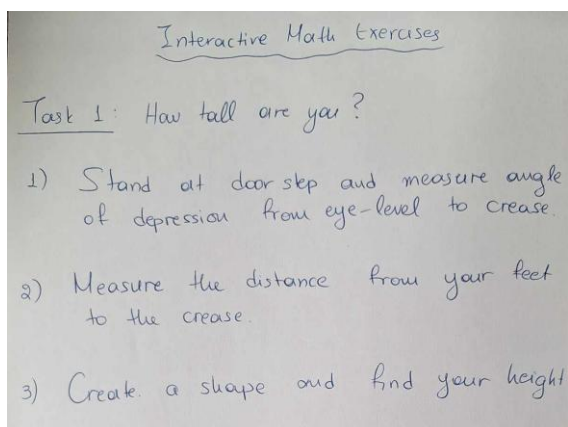 Interactive Math Exercises
Task 1: How tall are you?
1) Stand at door step and measure angle
of depression from eye-level to crease.
2) Measure the distance from your feet
to the crease.
3) Create a shape and find your height